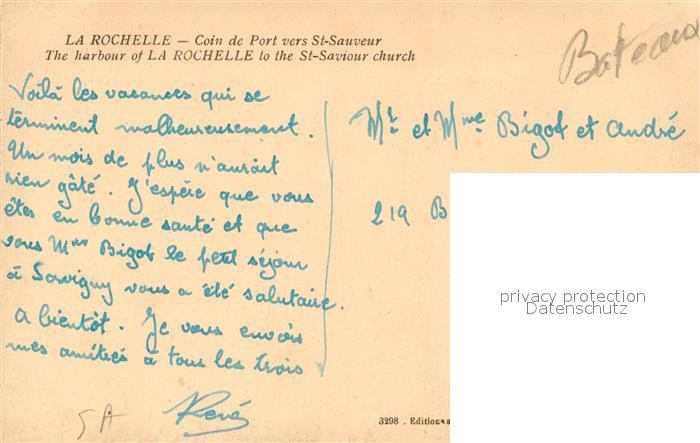 LA ROCHELLE — Coin de Port vers St-Sauveur
The harbour of LA ROCHELLE to the St-Saviour church
Bateaux
Voilà les vacances qui se
terminent malheureusement.
Un mois de plus n'aurait
rien gâté. J'espère que vous
êtes en bonne santé et que
vous Mme Bigot le petit séjour
à Savigny vous a été salutaire.
A bientôt. Je vous envois
mes amitiés à tous les trois
René
Mr et Mme Bigot et André
219 B
privacy protection
Datenschutz
5A
3298 . Editions